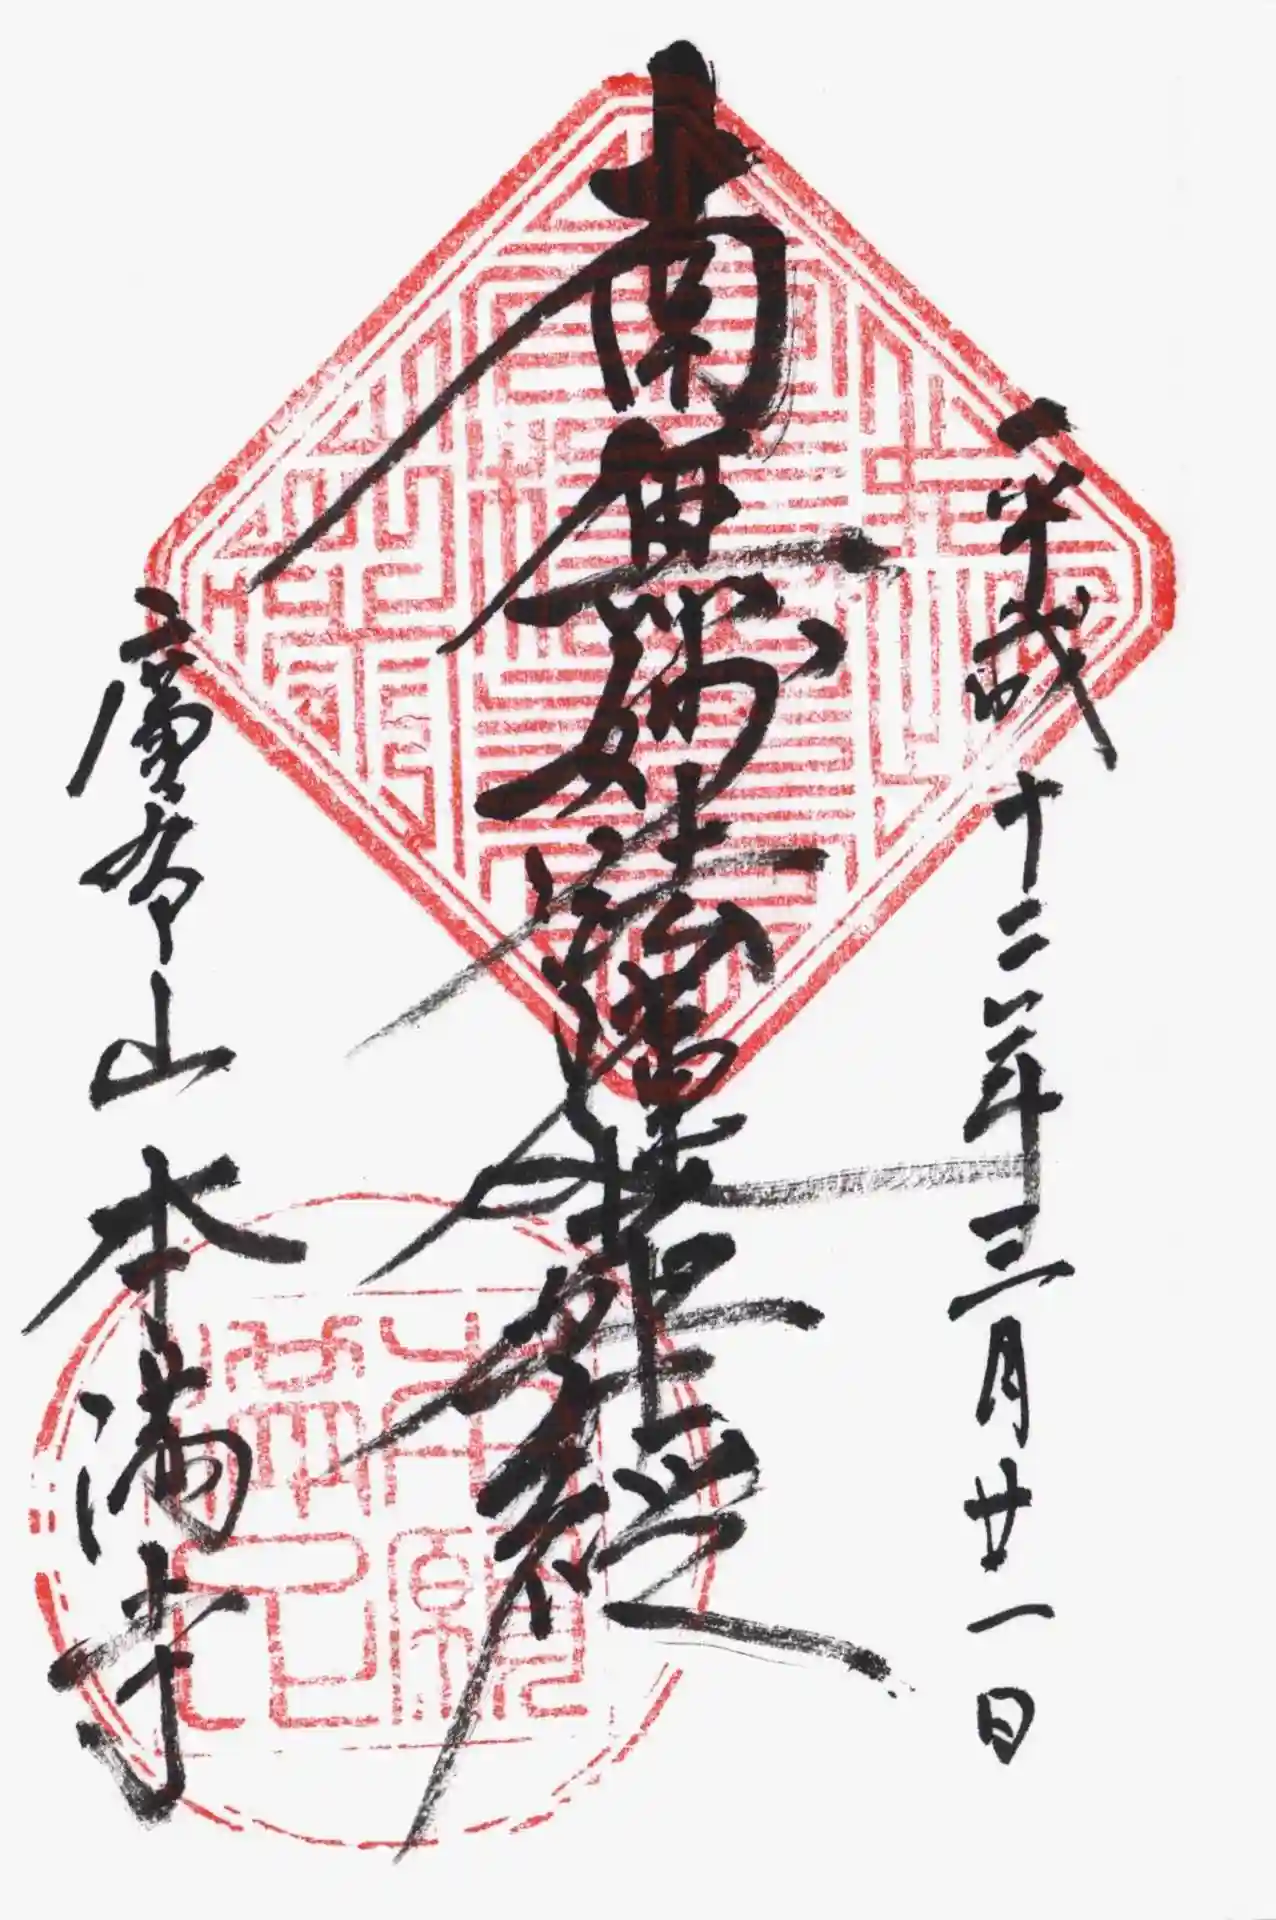 平成十二年三月廿一日
南無妙法蓮華経
廣布山本満寺